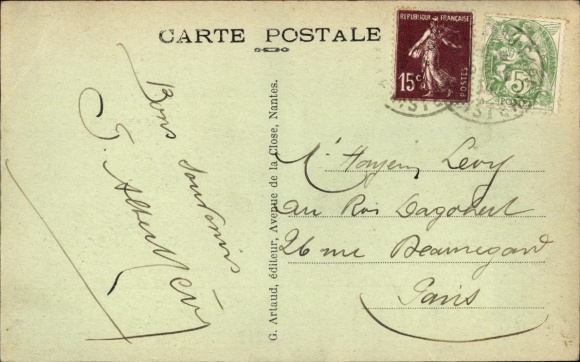 CARTE POSTALE
REPUBLIQUE FRANÇAISE
15c
POSTES
5c
Bons Souvenirs
J. Albert Lévy
G. Artaud, éditeur, Avenue de la Close, Nantes.
Lévy
au Roi Dagobert
26 rue Beauregard
Paris